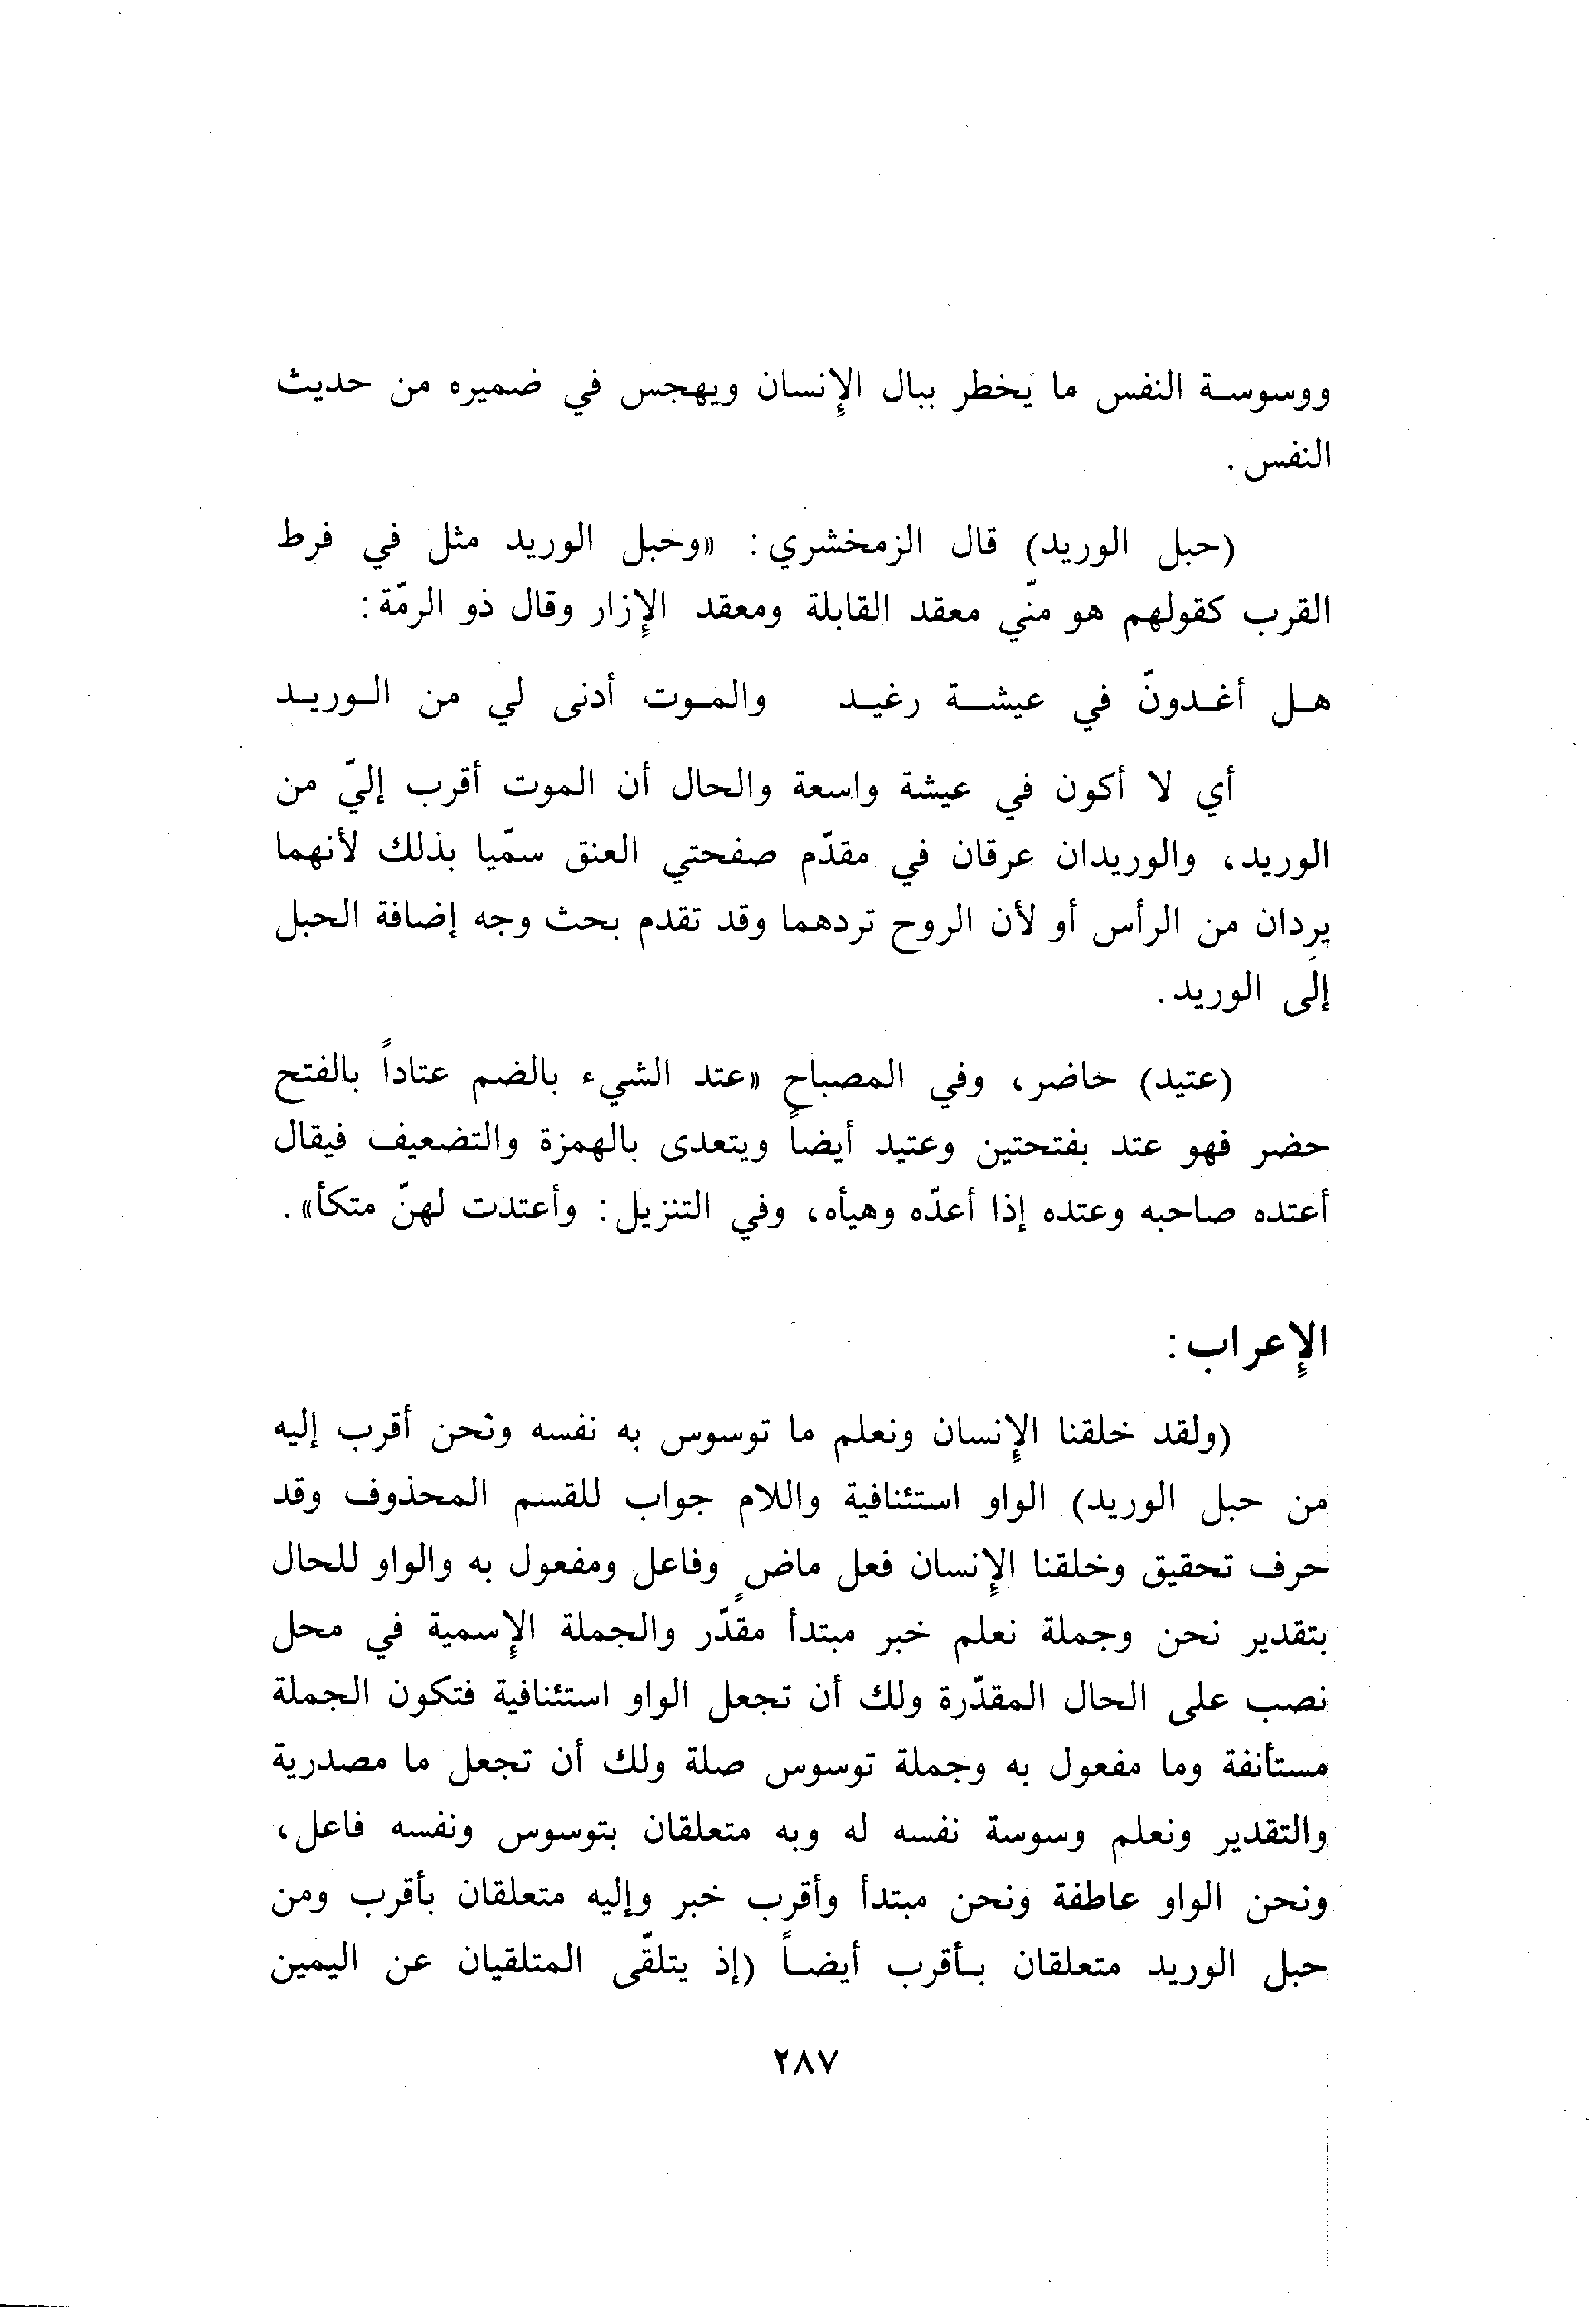 ووسوسة النفس ما يخطر ببال الإنسان ويهجس في ضميره من حديث
النفس.
(حبل الوريد) قال الزمخشري: «وحبل الوريد مثل في فرط
القرب كقولهم هو منّي معقد القابلة ومعقد الإزار وقال ذو الرمّة:
هل أغدونّ في عيشة رغيد والموت أدنى لي من الوريد
أي لا أكون في عيشة واسعة والحال أن الموت أقرب إليّ من
الوريد، والوريدان عرقان في مقدّم صفحتي العنق سمّيا بذلك لأنهما
يردان من الرأس أو لأن الروح تردهما وقد تقدم بحث وجه إضافة الحبل
إلى الوريد.
(عتيد) حاضر، وفي المصباح «عتد الشيء بالضم عتاداً بالفتح
حضر فهو عتد بفتحتين وعتيد أيضاً ويتعدى بالهمزة والتضعيف فيقال
أعتده صاحبه وعتده إذا أعدّه وهيأه، وفي التنزيل: وأعتدت لهنّ متكأ».
الإعراب:
(ولقد خلقنا الإنسان ونعلم ما توسوس به نفسه ونحن أقرب إليه
من حبل الوريد) الواو استئنافية واللام جواب للقسم المحذوف وقد
حرف تحقيق وخلقنا الإنسان فعل ماضٍ وفاعل ومفعول به والواو للحال
بتقدير نحن وجملة نعلم خبر مبتدأ مقدّر والجملة الإسمية في محل
نصب على الحال المقدّرة ولك أن تجعل الواو استئنافية فتكون الجملة
مستأنفة وما مفعول به وجملة توسوس صلة ولك أن تجعل ما مصدرية
والتقدير ونعلم وسوسة نفسه له وبه متعلقان بتوسوس ونفسه فاعل،
ونحن الواو عاطفة ونحن مبتدأ وأقرب خبر وإليه متعلقان بأقرب ومن
حبل الوريد متعلقان بأقرب أيضاً (إذ يتلقّى المتلقيان عن اليمين
٢٨٧